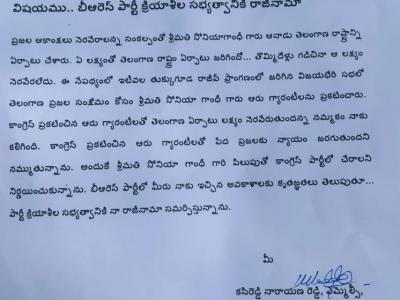 విషయము.. బీఆరెస్ పార్టీ క్రియాశీల సభ్యత్వానికి రాజీనామా
ప్రజల ఆకాంక్షలు నెరవేరాలన్న సంకల్పంతో శ్రీమతి సోనియాగాంధీ గారు ఆనాడు తెలంగాణ రాష్ట్రాన్ని
ఏర్పాటు చేశారు. ఏ లక్ష్యంతో తెలంగాణ రాష్ట్రం ఏర్పాటు జరిగిందో... తొమ్మిదేళ్లు గడిచినా ఆ లక్ష్యం
నెరవేరలేదు. ఈ నేపథ్యంలో ఇటీవల తుక్కుగూడ రాజీవ్ ప్రాంగణంలో జరిగిన విజయభేరి సభలో
తెలంగాణ ప్రజల సంక్షేమం కోసం శ్రీమతి సోనియా గాంధీ గారు ఆరు గ్యారంటీలను ప్రకటించారు.
కాంగ్రెస్ ప్రకటించిన ఆరు గ్యారంటీలతో తెలంగాణ ఏర్పాటు లక్ష్యం నెరవేరుతుందన్న నమ్మకం నాకు
కలిగింది. కాంగ్రెస్ ప్రకటించిన ఆరు గ్యారంటీలతో పేద ప్రజలకు న్యాయం జరుగుతుందని
నమ్ముతున్నాను. అందుకే శ్రీమతి సోనియా గాంధీ గారి పిలుపుతో కాంగ్రెస్ పార్టీలో చేరాలని
నిర్ణయించుకున్నాను. బీఆరెస్ పార్టీలో మీరు నాకు ఇచ్చిన అవకాశాలకు కృతజ్ఞతలు తెలుపుతూ...
పార్టీ క్రియాశీల సభ్యత్వానికి నా రాజీనామా సమర్పిస్తున్నాను.
మీ
కసిరెడ్డి నారాయణ రెడ్డి, ఎమ్మెల్సీ,